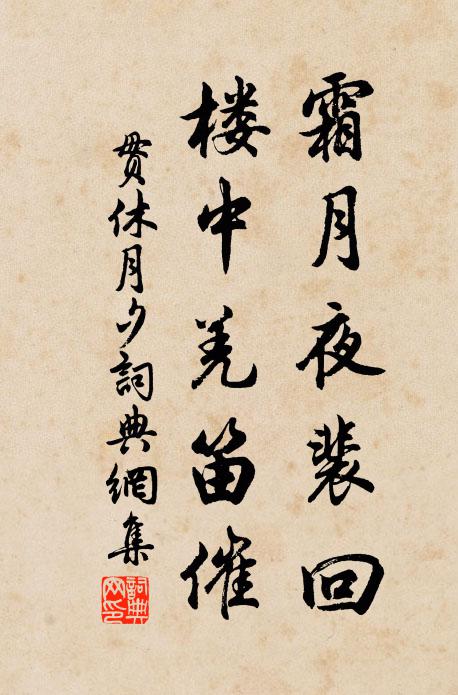 霜月夜裴回
楼中羌笛催
贯休月夕詞典網集
詞典网印